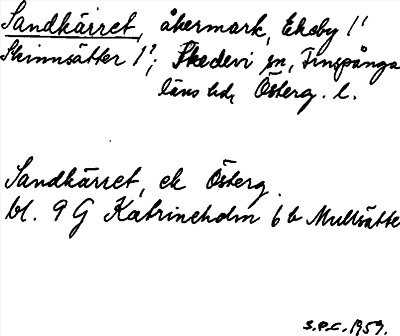 Sandkärret, åkermark, Ekeby 1'
Skinnsätter 1²; Skedevi sn, Finspånga
läns hd, Österg. l.
Sandkärret, ek Österg.
bl. 9 G Katrineholm 6 b Mullsätte
S.P.C. 1959.